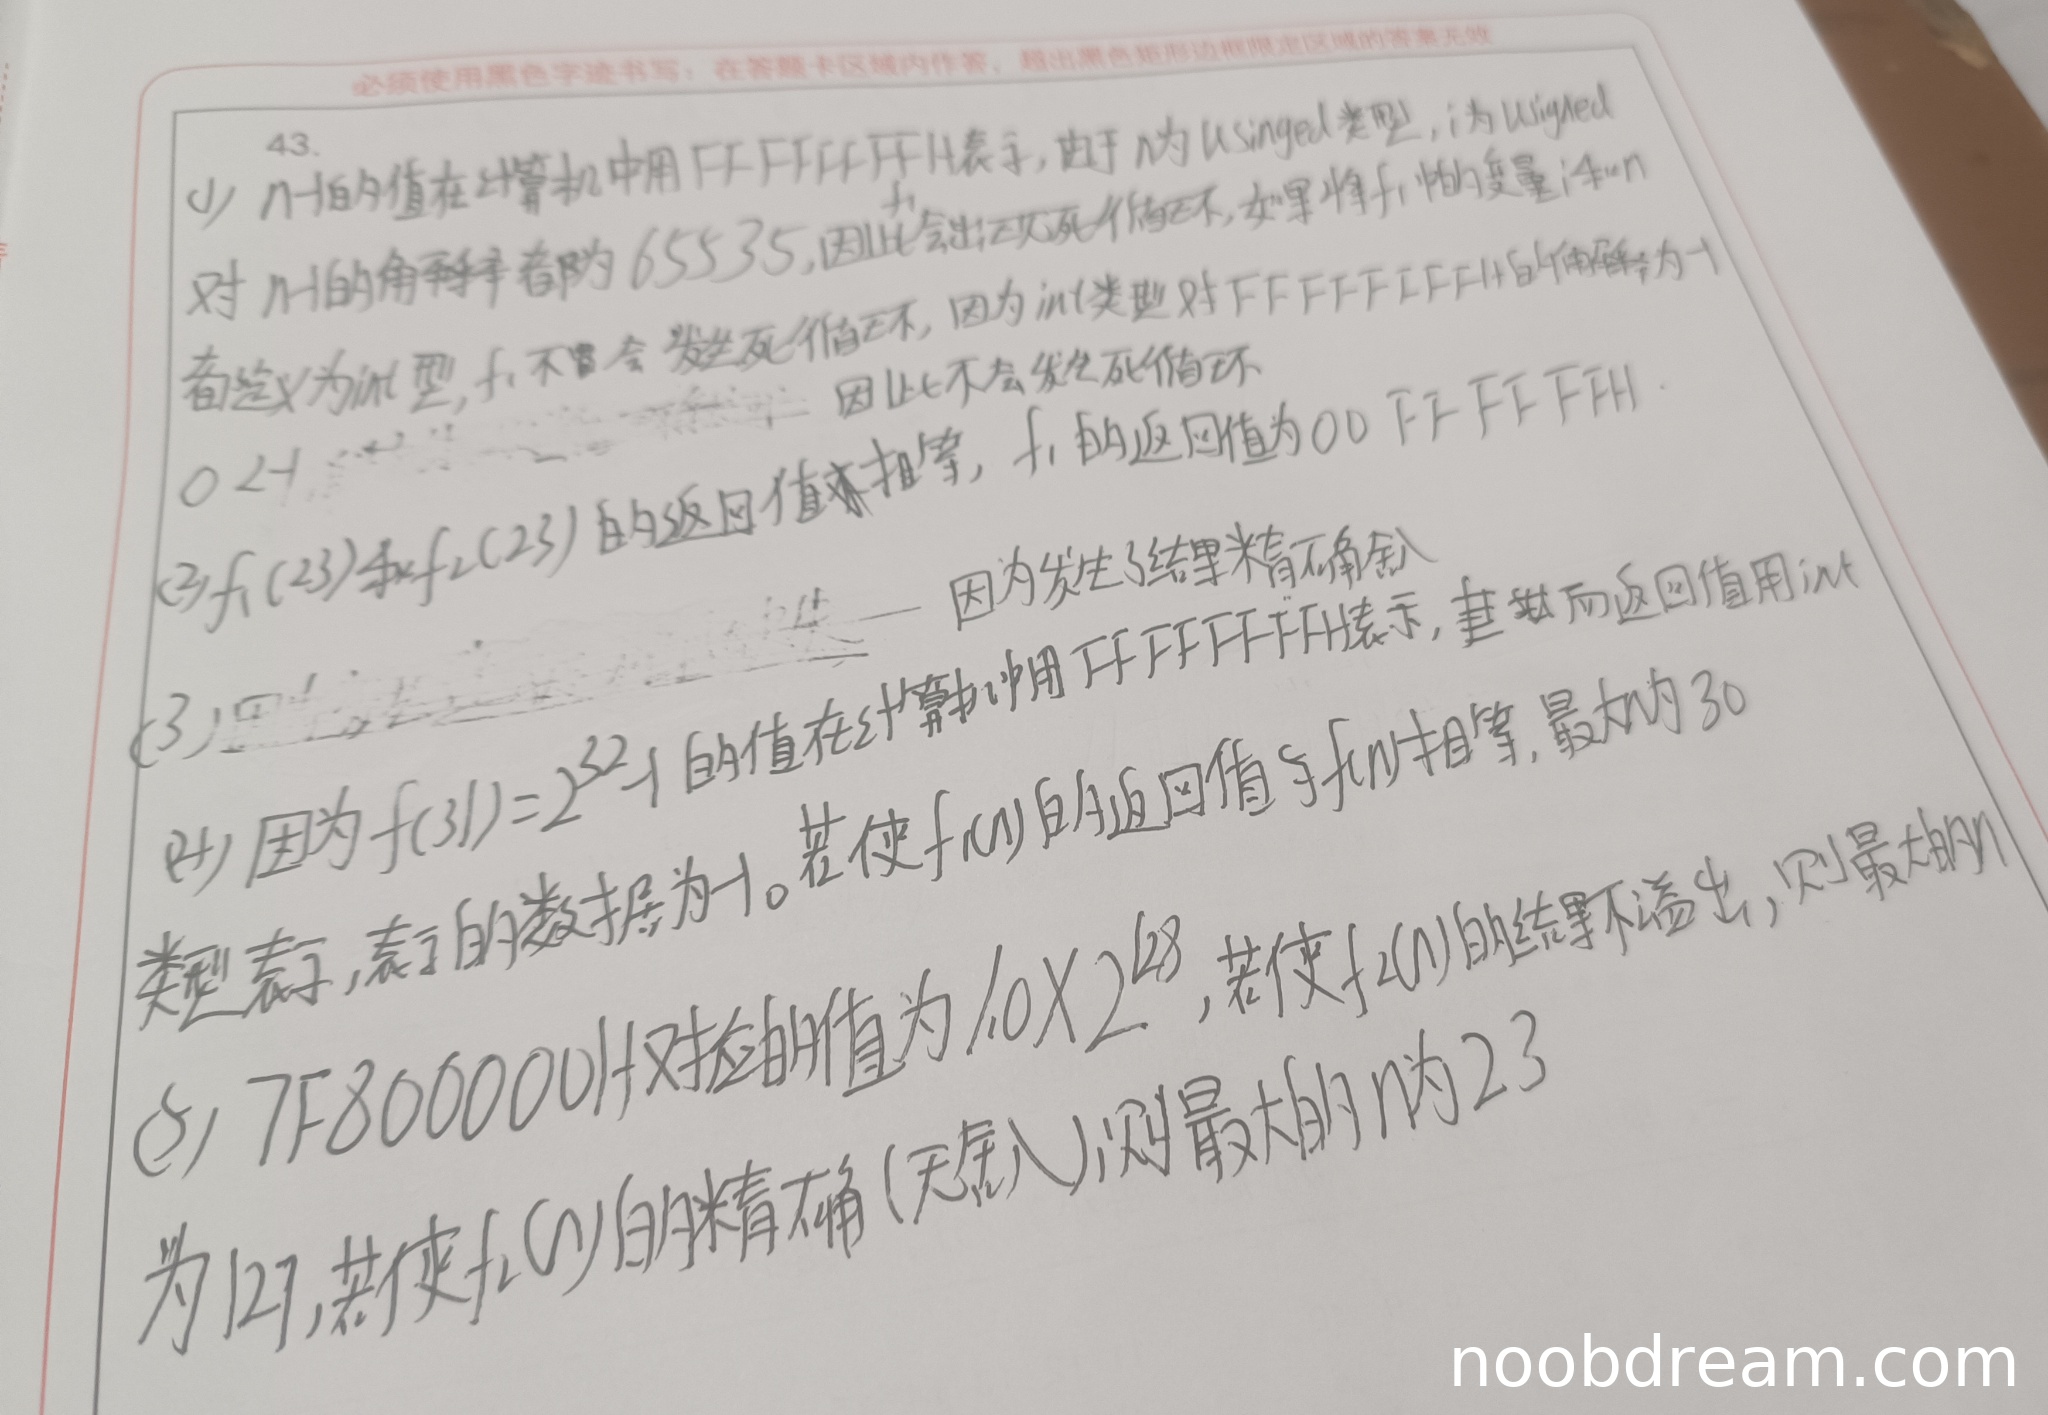 必须使用黑色字迹书写，在答题卡区域内作答，超出黑色矩形边框限定区域的答案无效
43.
(1) n-1的值在计算机中用FFFFFFFFH表示，由于n为usinged类型，i为usigned
对n-1的解释都为65535，因此f1会出现死循环，如果将f1中的变量i和n
都定义为int型，f1不会发生死循环，因为int类型对FFFFFFFFH的解释为-1
0<-1 因此不会发生死循环
(2) f1(23)和f2(23)的返回值相等，f1的返回值为00FFFFFFH.
(3) 因为发生了结果精确舍入
(4) 因为f(31)=2^32-1的值在计算机中用FFFFFFFFH表示，而返回值用int
类型表示，表示的数据为-1。若使f1(n)的返回值与f(n)相等，最大n为30
(5) 7F800000H对应的值为1.0×2^128，若使f2(n)的结果不溢出，则最大的n
为127，若使f2(n)的精确(无舍入)，则最大的n为23
noobdream.com